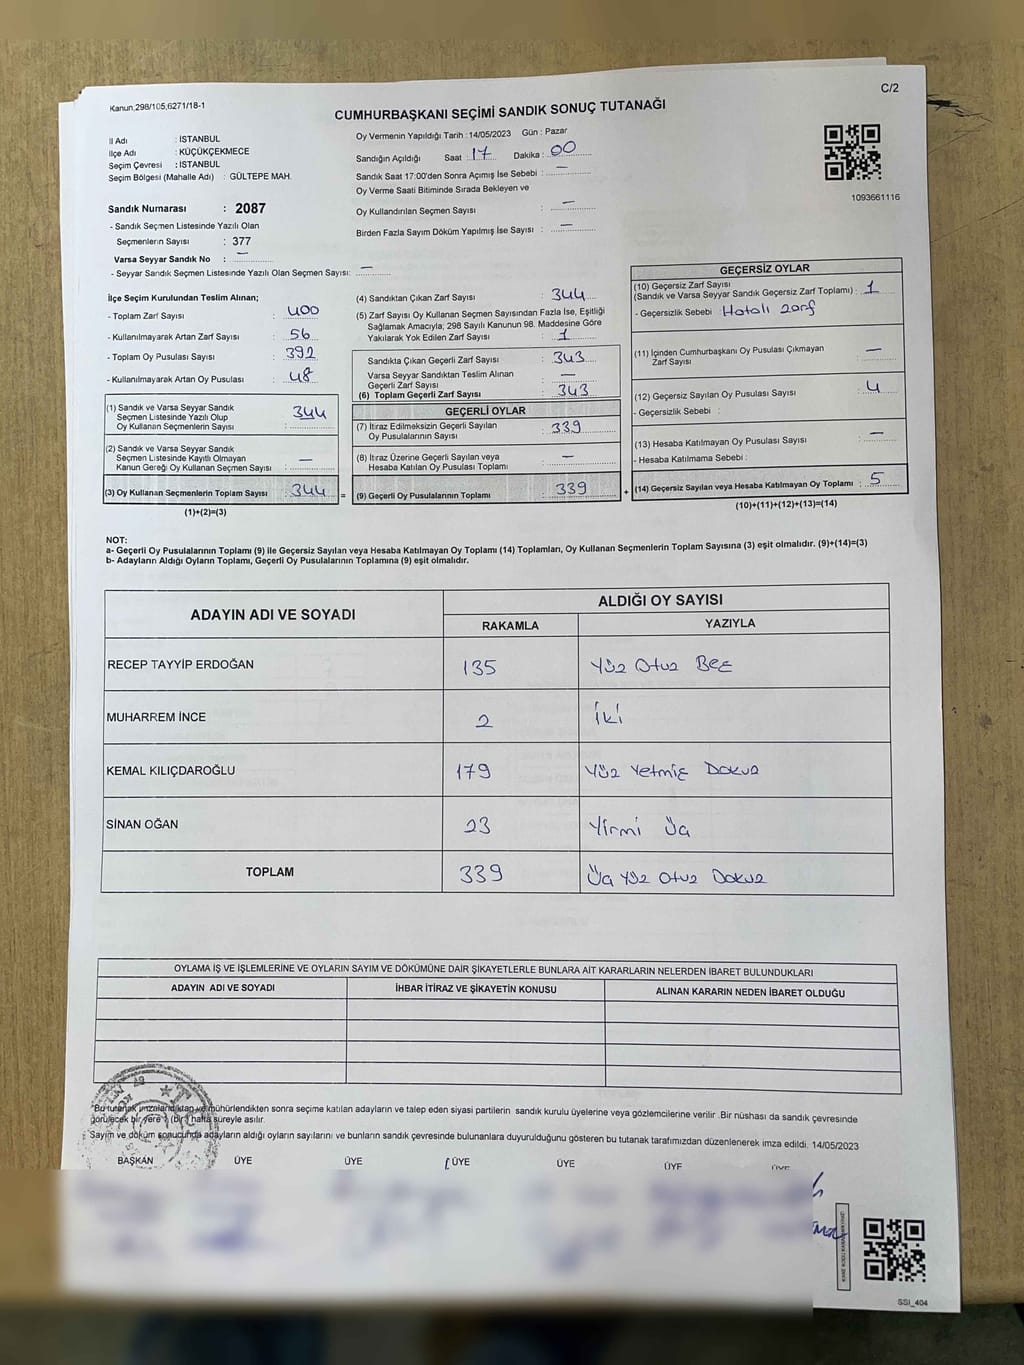 C/2
Kanun.298/105,6271/18-1
CUMHURBAŞKANI SEÇİMİ SANDIK SONUÇ TUTANAĞI
İl Adı : İSTANBUL
İlçe Adı : KÜÇÜKÇEKMECE
Seçim Çevresi : İSTANBUL
Seçim Bölgesi (Mahalle Adı) : GÜLTEPE MAH.
Oy Vermenin Yapıldığı Tarih :14/05/2023 Gün : Pazar
Sandığın Açıldığı Saat : 17 Dakika : 00
Sandık Saat 17:00'den Sonra Açımış İse Sebebi : —
Oy Verme Saati Bitiminde Sırada Bekleyen ve
Oy Kullandırılan Seçmen Sayısı : —
Birden Fazla Sayım Döküm Yapılmış İse Sayısı : —
1093661116
Sandık Numarası : 2087
- Sandık Seçmen Listesinde Yazılı Olan
Seçmenlerin Sayısı : 377
Varsa Seyyar Sandık No : —
- Seyyar Sandık Seçmen Listesinde Yazılı Olan Seçmen Sayısı: —
İlçe Seçim Kurulundan Teslim Alınan;
- Toplam Zarf Sayısı : 400
- Kullanılmayarak Artan Zarf Sayısı : 56
- Toplam Oy Pusulası Sayısı : 392
- Kullanılmayarak Artan Oy Pusulası : 48
(1) Sandık ve Varsa Seyyar Sandık
Seçmen Listesinde Yazılı Olup
Oy Kullanan Seçmenlerin Sayısı : 344
(2) Sandık ve Varsa Seyyar Sandık
Seçmen Listesinde Kayıtlı Olmayan
Kanun Gereği Oy Kullanan Seçmen Sayısı : —
(3) Oy Kullanan Seçmenlerin Toplam Sayısı : 344 =
(1)+(2)=(3)
(4) Sandıktan Çıkan Zarf Sayısı : 344
(5) Zarf Sayısı Oy Kullanan Seçmen Sayısından Fazla İse, Eşitliği
Sağlamak Amacıyla; 298 Sayılı Kanunun 98. Maddesine Göre
Yakılarak Yok Edilen Zarf Sayısı : 1
Sandıkta Çıkan Geçerli Zarf Sayısı : 343
Varsa Seyyar Sandıktan Teslim Alınan
Geçerli Zarf Sayısı : —
(6) Toplam Geçerli Zarf Sayısı : 343
GEÇERLİ OYLAR
(7) İtiraz Edilmeksizin Geçerli Sayılan
Oy Pusulalarının Sayısı : 339
(8) İtiraz Üzerine Geçerli Sayılan veya
Hesaba Katılan Oy Pusulası Toplamı : —
(9) Geçerli Oy Pusulalarının Toplamı : 339 +
GEÇERSİZ OYLAR
(10) Geçersiz Zarf Sayısı
(Sandık ve Varsa Seyyar Sandık Geçersiz Zarf Toplamı) : 1
- Geçersizlik Sebebi : Hatalı zarf
(11) İçinden Cumhurbaşkanı Oy Pusulası Çıkmayan
Zarf Sayısı : —
(12) Geçersiz Sayılan Oy Pusulası Sayısı : 4
- Geçersizlik Sebebi :
(13) Hesaba Katılmayan Oy Pusulası Sayısı : —
- Hesaba Katılmama Sebebi :
(14) Geçersiz Sayılan veya Hesaba Katılmayan Oy Toplamı : 5
(10)+(11)+(12)+(13)=(14)
NOT:
a- Geçerli Oy Pusulalarının Toplamı (9) ile Geçersiz Sayılan veya Hesaba Katılmayan Oy Toplamı (14) Toplamları, Oy Kullanan Seçmenlerin Toplam Sayısına (3) eşit olmalıdır. (9)+(14)=(3)
b- Adayların Aldığı Oyların Toplamı, Geçerli Oy Pusulalarının Toplamına (9) eşit olmalıdır.
ADAYIN ADI VE SOYADI ALDIĞI OY SAYISI
RAKAMLA YAZIYLA
RECEP TAYYİP ERDOĞAN 135 Yüz Otuz Beş
MUHARREM İNCE 2 İki
KEMAL KILIÇDAROĞLU 179 Yüz Yetmiş Dokuz
SİNAN OĞAN 23 Yirmi Üç
TOPLAM 339 Üç Yüz Otuz Dokuz
OYLAMA İŞ VE İŞLEMLERİNE VE OYLARIN SAYIM VE DÖKÜMÜNE DAİR ŞİKAYETLERLE BUNLARA AİT KARARLARIN NELERDEN İBARET BULUNDUKLARI
ADAYIN ADI VE SOYADI İHBAR İTİRAZ VE ŞİKAYETİN KONUSU ALINAN KARARIN NEDEN İBARET OLDUĞU
"Bu tutanak imzalandıktan ve mühürlendikten sonra seçime katılan adayların ve talep eden siyasi partilerin sandık kurulu üyelerine veya gözlemcilerine verilir .Bir nüshası da sandık çevresinde
görülecek bir yere 1 (bir) hafta süreyle asılır.
Sayım ve döküm sonucunda adayların aldığı oyların sayılarını ve bunların sandık çevresinde bulunanlara duyurulduğunu gösteren bu tutanak tarafımızdan düzenlenerek imza edildi. 14/05/2023
BAŞKAN ÜYE ÜYE ÜYE ÜYE ÜYE ÜYE
SSİ_404